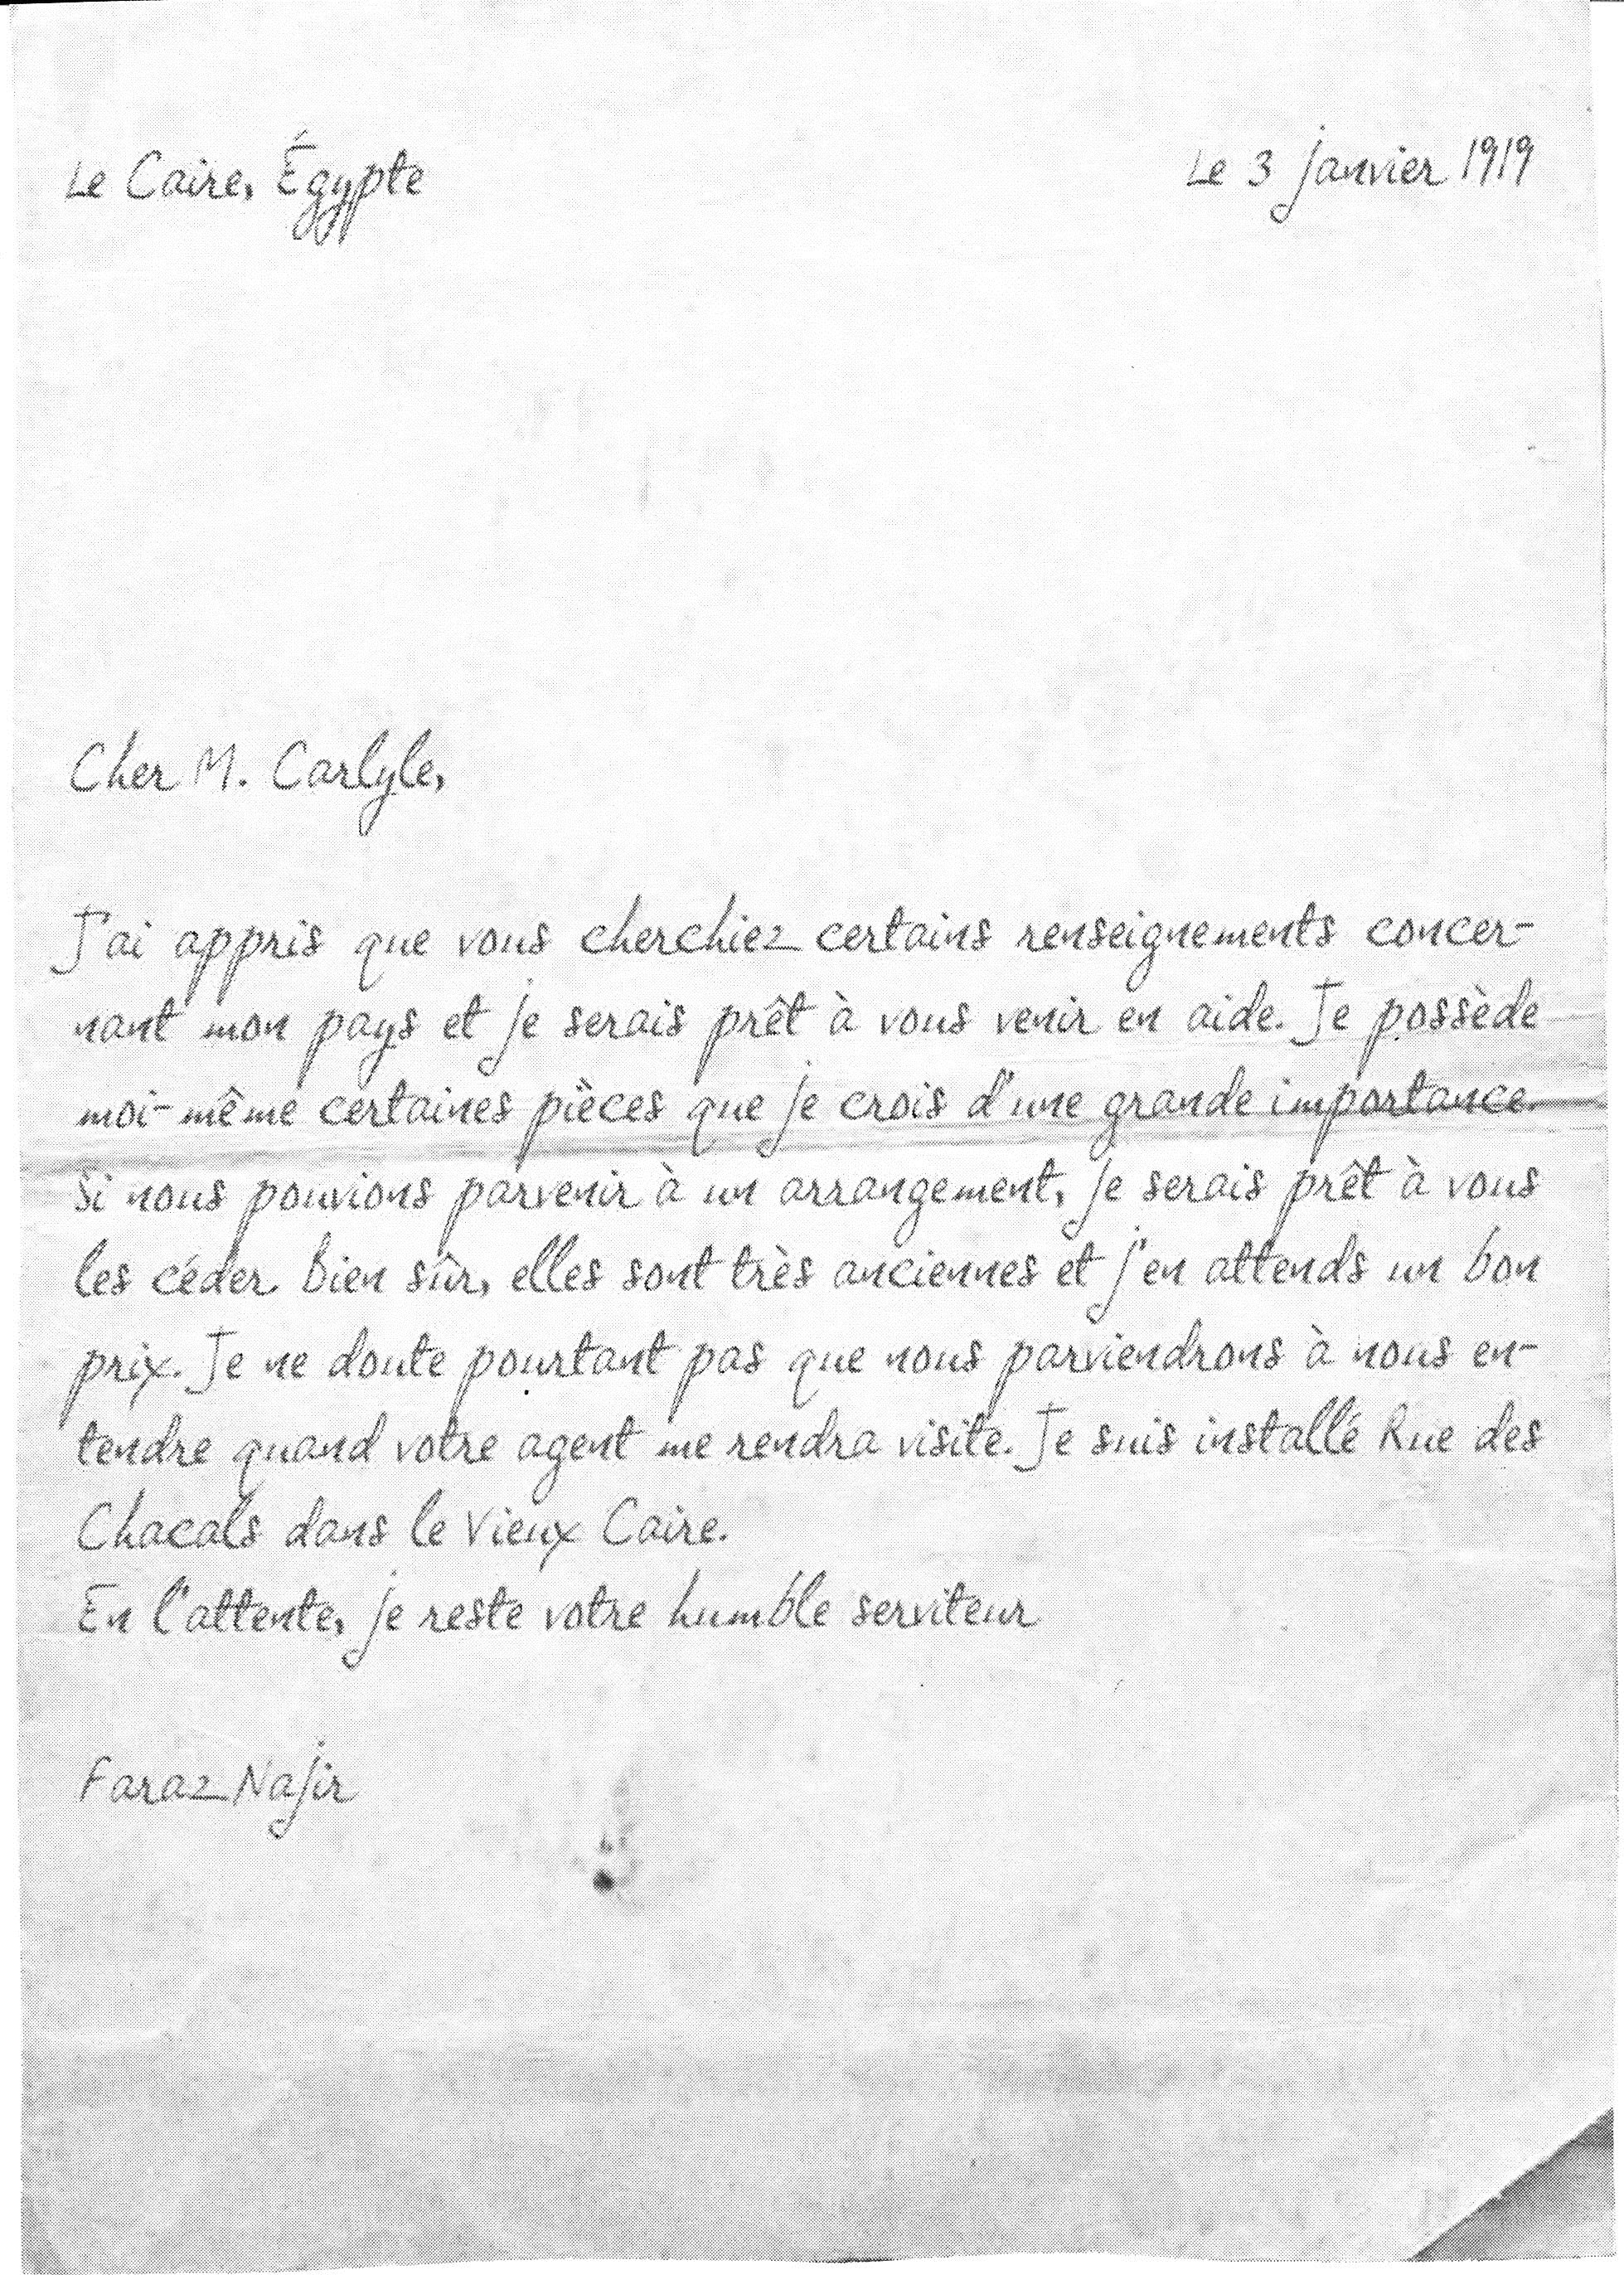 Le Caire, Égypte
Le 3 janvier 1919
Cher M. Carlyle,
J'ai appris que vous cherchiez certains renseignements concer-
nant mon pays et je serais prêt à vous venir en aide. Je possède
moi-même certaines pièces que je crois d'une grande importance.
Si nous pouvions parvenir à un arrangement, je serais prêt à vous
les céder. Bien sûr, elles sont très anciennes et j'en attends un bon
prix. Je ne doute pourtant pas que nous parviendrons à nous en-
tendre quand votre agent me rendra visite. Je suis installé Rue des
Chacals dans le Vieux Caire.
En l'attente, je reste votre humble serviteur
Faraz Najir